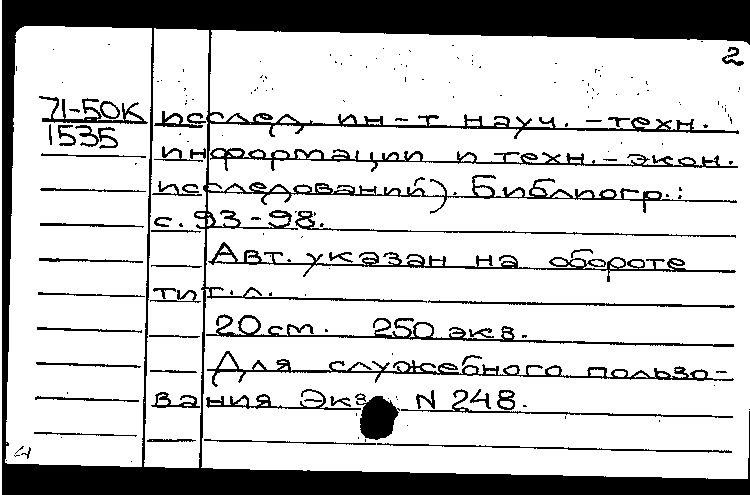 2
71-50К исслед. ин-т науч.-техн.
1535
информации и техн.-экон.
исследований). Библиогр.:
с. 93-98.
Авт. указан на обороте
тит. л.
20 см. 250 экз.
Для служебного пользо-
вания Экз. N 248.